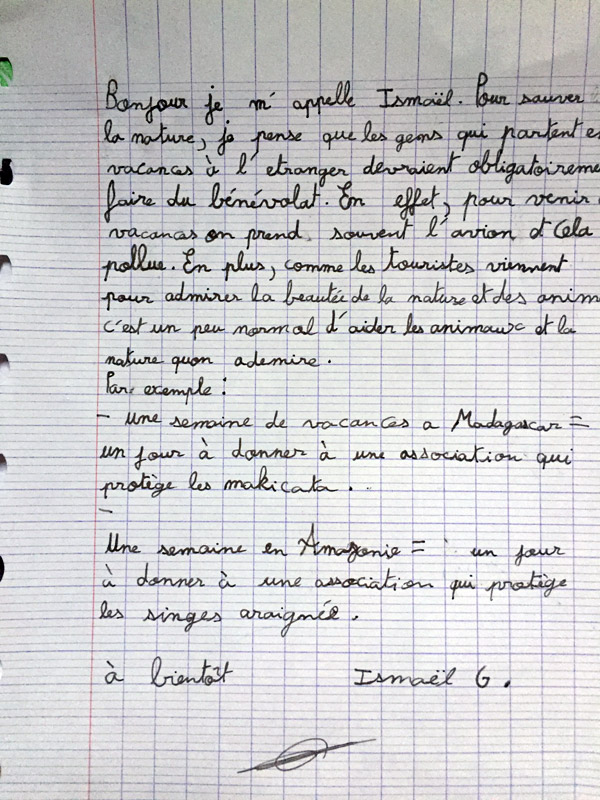 Bonjour je m'appelle Ismaël. Pour sauver
la nature, je pense que les gens qui partent e
vacances à l'etranger devraient obligatoireme
faire du bénévolat. En effet, pour venir
vacances on prend souvent l'avion et Cela
pollue. En plus, comme les touristes viennent
pour admirer la beautée de la nature et des anim
c'est un peu normal d'aider les animaux et la
nature quon ademire.
Par exemple :
- une semaine de vacances a Madagascar =
un jour à donner à une association qui
protège les makicata.
-
Une semaine en Amazonie = un jour
à donner à une association qui protège
les singes araignée.
à bientôt Ismaël G.